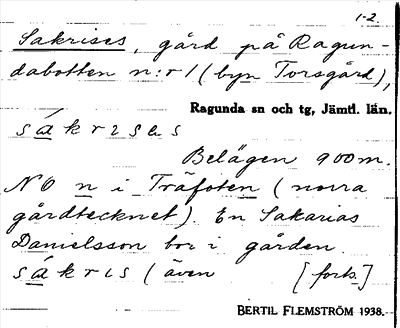 1-2.
Sakrises, gård på Ragun-
dabotten n:r 1 (byn Torsgård),
Ragunda sn och tg, Jämtl. län.
sákrises
Belägen 900 m.
NO n i Träfoten (norra
gårdtecknet). En Sakarias
Danielsson bor i gården.
sákris (även [forts.]
BERTIL FLEMSTRÖM 1938.